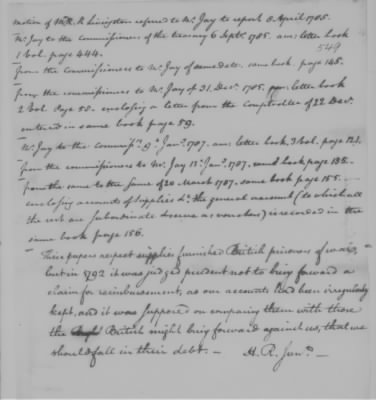 motion of Mr. R. Livingston referred to Mr. Jay to report 5 April 1785.
Mr. Jay to the commissioners of the treasury 6 Septr. 1785. am: letter book
549
1 vol. page 444.
From the commissioners to Mr. Jay of same date. same book. page 145.
From the commissioners to Mr. Jay of 31. Decr. 1785. letter book
2 Vol. Page 58. enclosing a letter from the Comptroller of 22 Decr.
entered in same book page 59.
Mr. Jay to the commissrs. 9th. Janry. 1787. am: letter book. 3 vol. page 121.
From the commissioners to Mr. Jay 12. Janry. 1787. book page 135.
From the same to the same of 20 March 1787. same book page 155.
enclosing accounts of supplies &c. the general account (to which all
the rest are subordinate & serve as vouchers) is recorded in the
same book page 156.
These papers respect supplies furnished British prisoners of war,
but in 1792 it was judged prudent not to bring forward a
claim for reimbursement, as our accounts had been irregularly
kept, and it was supposed on comparing them with those
the British might bring forward against us, that we
should fall in their debt. —
H. R. Janry. —